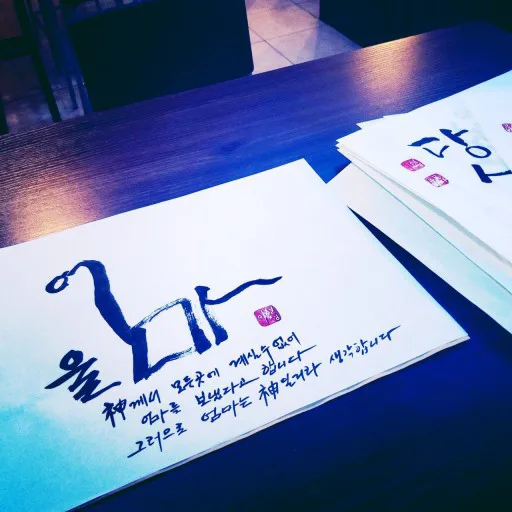 울 엄마
神께서 모든곳에 계실수없어
엄마를 보냈다고 합니다
그러므로 엄마는 神일거라 생각합니다